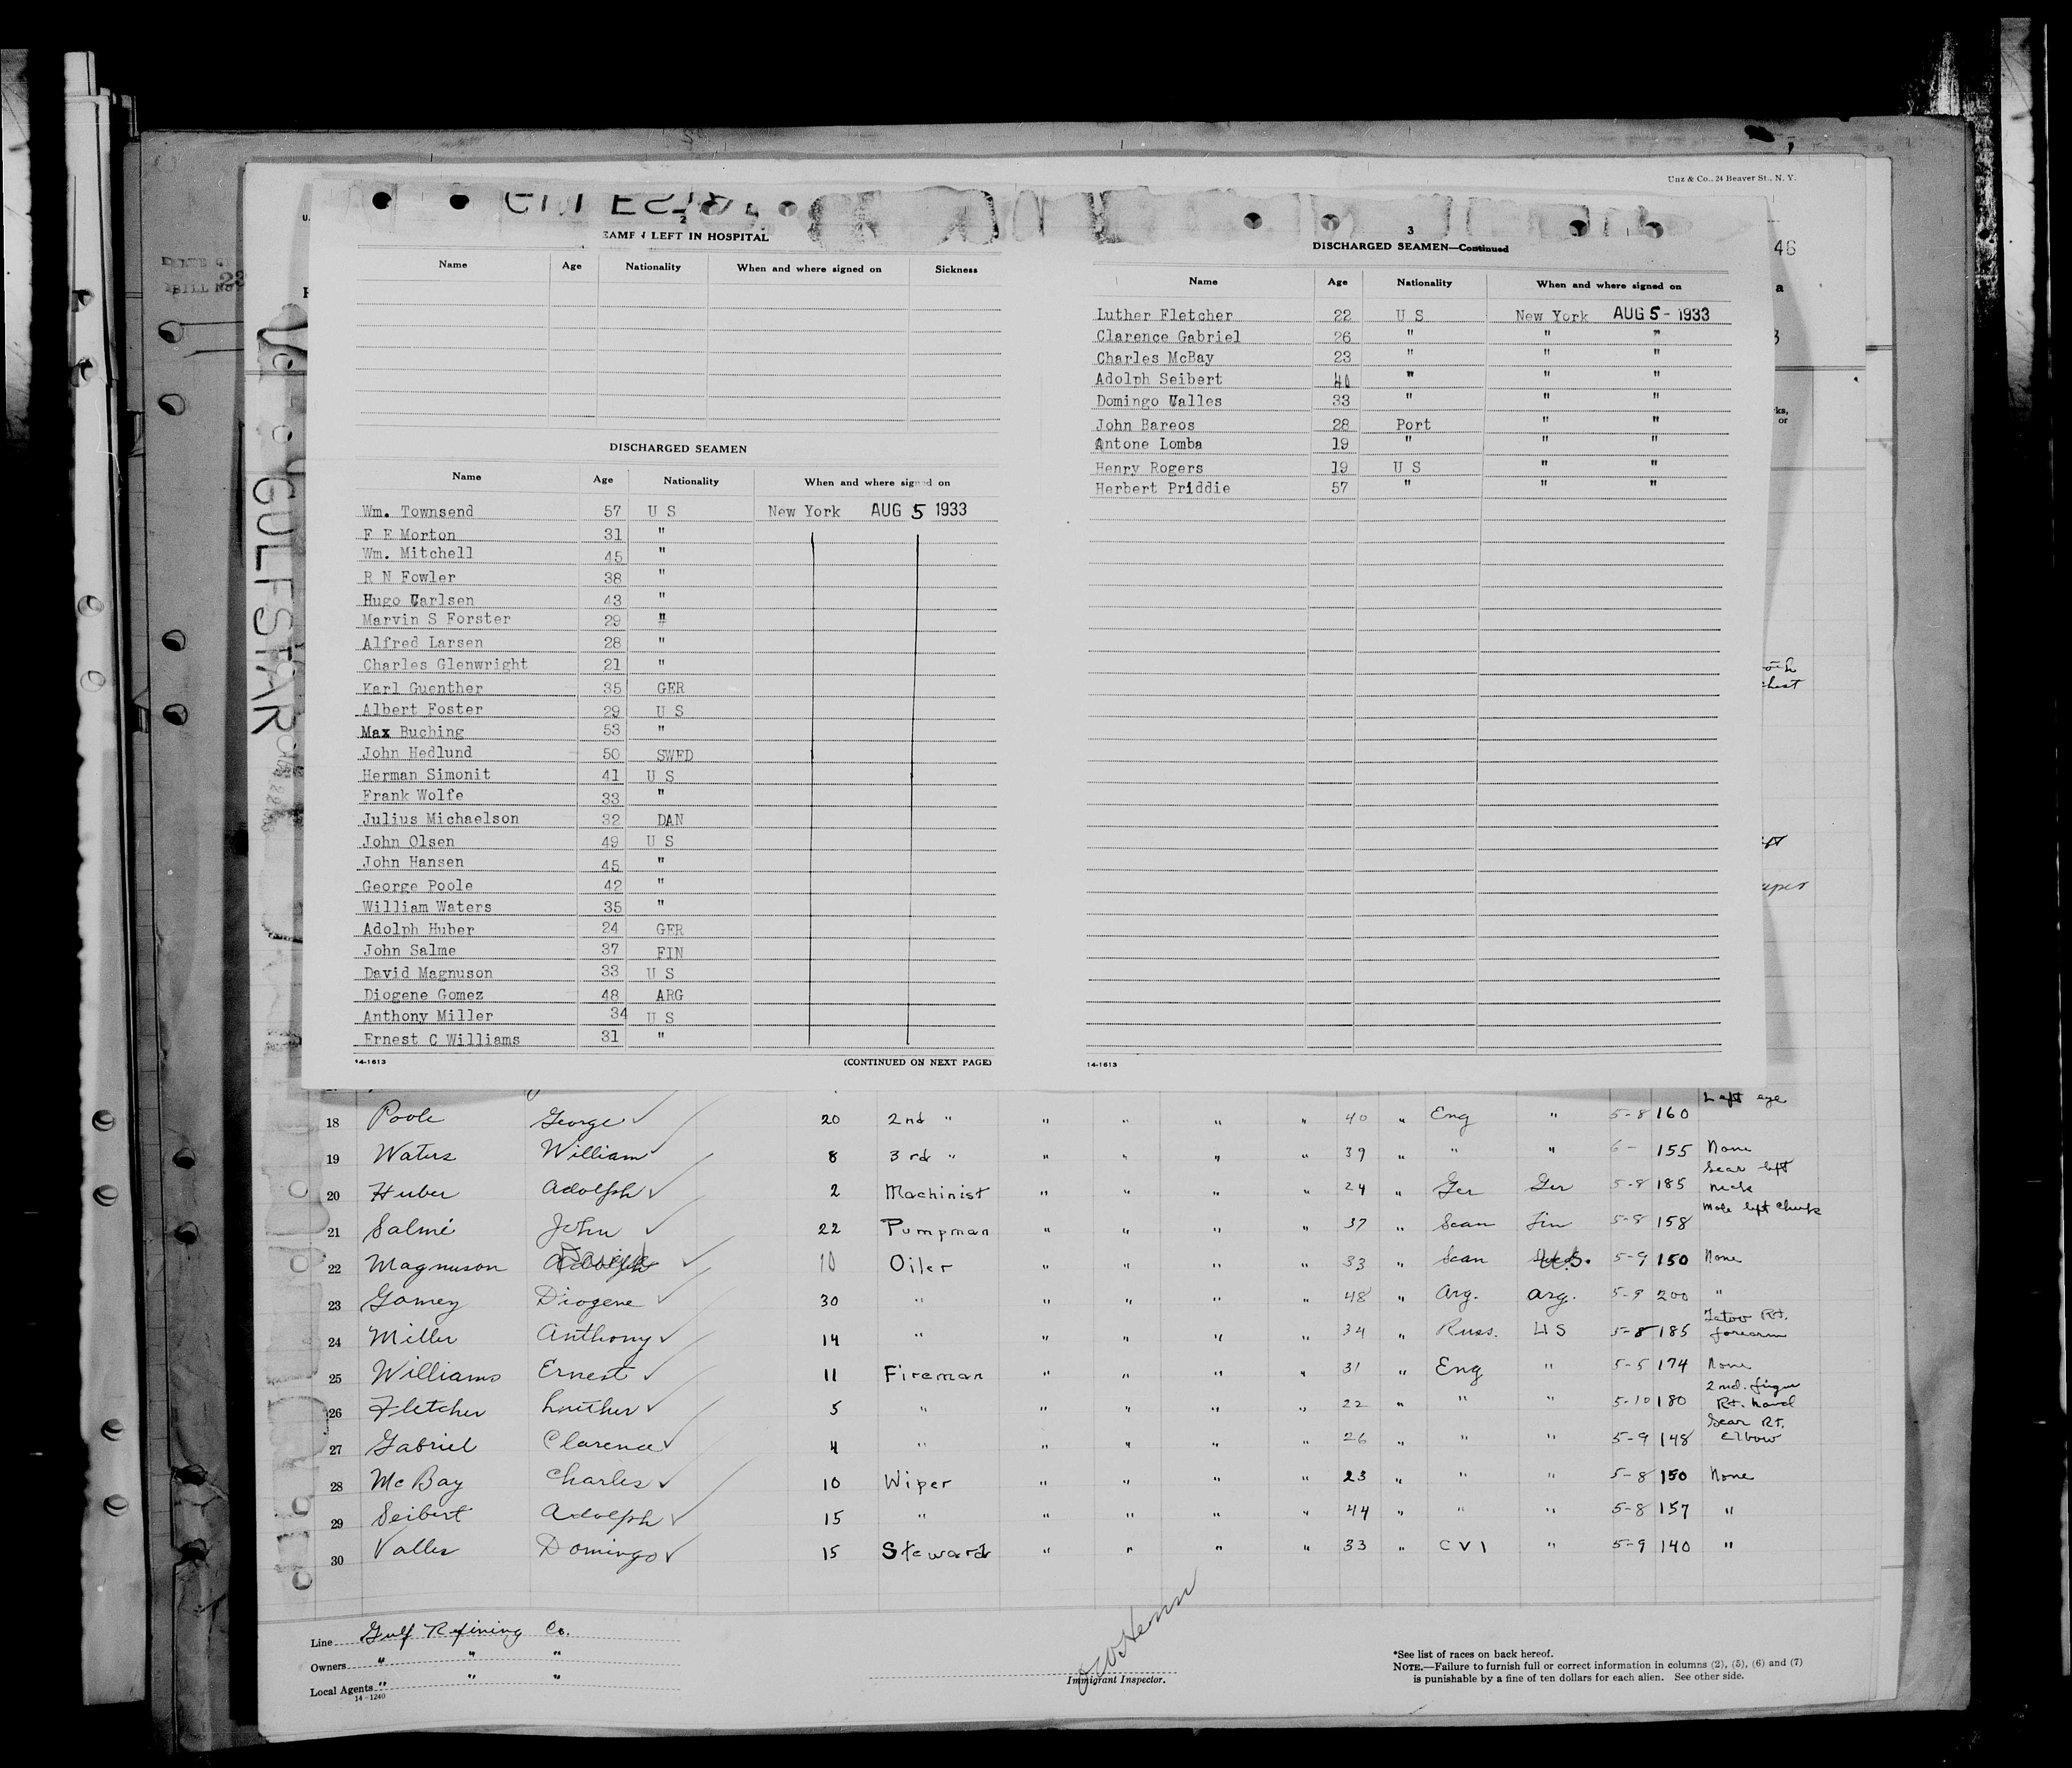 Unz & Co., 24 Beaver St., N. Y.
46
GULFSTAR
2
LEFT IN HOSPITAL
Name Age Nationality When and where signed on Sickness
DISCHARGED SEAMEN
Name Age Nationality When and where signed on
Wm. Townsend 57 U S New York AUG 5 1933
F E Morton 31 "
Wm. Mitchell 45 "
R N Fowler 38 "
Hugo Carlsen 43 "
Marvin S Forster 29 "
Alfred Larsen 28 "
Charles Glenwright 21 "
Karl Guenther 35 GER
Albert Foster 29 U S
Max Buching 53 "
John Hedlund 50 SWED
Herman Simonit 41 U S
Frank Wolfe 33 "
Julius Michaelson 32 DAN
John Olsen 49 U S
John Hansen 45 "
George Poole 42 "
William Waters 35 "
Adolph Huber 24 GER
John Salme 37 FIN
David Magnuson 33 U S
Diogene Gomez 48 ARG
Anthony Miller 34 U S
Ernest C Williams 31 "
14-1613 (CONTINUED ON NEXT PAGE)
3
DISCHARGED SEAMEN—Continued
Name Age Nationality When and where signed on
Luther Fletcher 22 U S New York AUG 5 - 1933
Clarence Gabriel 26 " " "
Charles McBay 23 " " "
Adolph Seibert 40 " " "
Domingo Valles 33 " " "
John Bareos 28 Port " "
Antone Lomba 19 " " "
Henry Rogers 19 U S " "
Herbert Priddie 57 " " "
14-1613
Left eye
18 Poole George 20 2nd " " " " " 40 " Eng " 5-8 160
19 Waters William 8 3rd " " " " " 39 " " " 6- 155 None
20 Huber Adolph 2 Machinist " " " " 24 " Ger Ger 5-8 185 Scar left neck
21 Salmé John 22 Pumpman " " " " 37 " Scan Fin 5-8 158 Mole left cheek
22 Magnuson David 10 Oiler " " " " 33 " Scan U.S. 5-9 150 None
23 Gomez Diogene 30 " " " " " 48 " Arg. Arg. 5-9 200 "
24 Miller Anthony 14 " " " " " 34 " Russ. US 5-8 185 Tatoo Rt. forearm
25 Williams Ernest 11 Fireman " " " " 31 " Eng " 5-5 174 None
26 Fletcher Luther 5 " " " " " 22 " " " 5-10 180 2nd. finger Rt. hand
27 Gabriel Clarence 4 " " " " " 26 " " " 5-9 148 Scar Rt. Elbow
28 McBay Charles 10 Wiper " " " " 23 " " " 5-8 150 None
29 Seibert Adolph 15 " " " " " 44 " " " 5-8 157 "
30 Valles Domingo 15 Steward " " " " 33 " C V I " 5-9 140 "
Line Gulf Refining Co.
Owners " " "
Local Agents " " "
14-1240
Immigrant Inspector.
*See list of races on back hereof.
NOTE.—Failure to furnish full or correct information in columns (2), (5), (6) and (7)
is punishable by a fine of ten dollars for each alien. See other side.